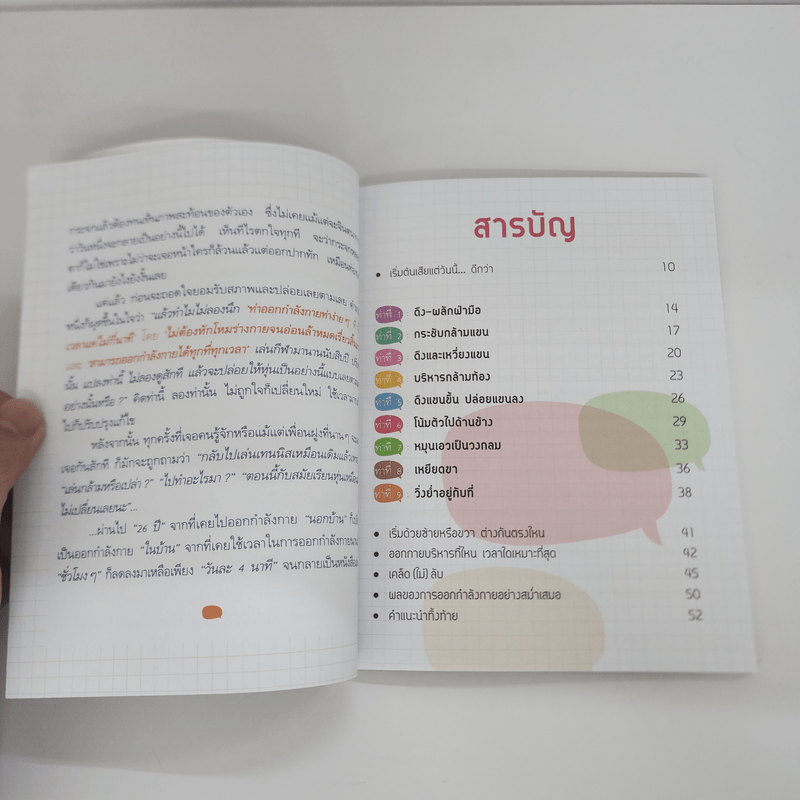 กระจกแล้วต้องทนเห็นภาพสะท้อนของตัวเอง ซึ่งไม่เคยแม้แต่จะจินตนา
ว่าวันหนึ่งจะกลายเป็นอย่างนี้ไปได้ เห็นทีไรตกใจทุกที จะว่ากระจก
ตาก็ไม่ใช่เพราะไม่ว่าจะเจอหน้าใครก็ล้วนแล้วแต่ออกปากทัก เหมือน
เดียวกันมายังไงยังงั้นเลย
แต่แล้ว ก่อนจะถอดใจยอมรับสภาพและปล่อยเลยตามเลย
หนึ่งก็ผุดขึ้นในใจว่า "แล้วทำไมไม่ลองนึก 'ท่าออกกำลังกายทำง่ายๆ'
เวลาแค่ไม่กี่นาที' โดย 'ไม่ต้องหักโหมร่างกายจนอ่อนล้าหมดเรี่ยว
และ 'สามารถออกกำลังกายได้ทุกที่ทุกเวลา' เล่นกีฬามานานนับสิบปี
นั้น แปลงท่านี้ ไม่ลองดูสักที แล้วจะปล่อยให้หุ่นเป็นอย่างนี้แบบเลยตาม
อย่างนั้นหรือ ?" คิดท่านี้ ลองท่านั้น ไม่ถูกใจก็เปลี่ยนใหม่ ใช้เวลา
ไปก็ปรับปรุงแก้ไข
หลังจากนั้น ทุกครั้งที่เจอคนรู้จักหรือแม้แต่เพื่อนฝูงที่นานๆ
เจอกันสักที ก็มักจะถูกถามว่า "กลับไปเล่นเทนนิสเหมือนเดิมแล้ว
"เล่นกล้ามหรือเปล่า ?" "ไปทำอะไรมา ?" "ตอนนี้กับสมัยเรียนหุ่นเหมือน
ไม่เปลี่ยนเลยนะ"...
...ผ่านไป "26 ปี" จากที่เคยไปออกกำลังกาย "นอกบ้าน"
เป็นออกกำลังกาย "ในบ้าน" จากที่เคยใช้เวลาในการออกกำลังกาย
"ชั่วโมงๆ" ก็ลดลงมาเหลือเพียง "วันละ 4 นาที" จนกลายเป็นหนังสือ
สารบัญ
• เริ่มต้นเสียแต่วันนี้... ดีกว่า 10
ท่าที่ 1 : ดึง-ผลักฝ่ามือ 14
ท่าที่ 2 : กระชับกล้ามแขน 17
ท่าที่ 3 : ดึงและเหวี่ยงแขน 20
ท่าที่ 4 : บริหารกล้ามท้อง 23
ท่าที่ 5 : ดึงแขนขึ้น ปล่อยแขนลง 26
ท่าที่ 6 : โน้มตัวไปด้านข้าง 29
ท่าที่ 7 : หมุนเอวเป็นวงกลม 33
ท่าที่ 8 : เหยียดขา 36
ท่าที่ 9 : วิ่งย่ำอยู่กับที่ 38
• เริ่มด้วยซ้ายหรือขวา ต่างกันตรงไหน 41
• ออกกายบริหารที่ไหน เวลาใดเหมาะที่สุด 42
• เคล็ด (ไม่) ลับ 45
• ผลของการออกกำลังกายอย่างสม่ำเสมอ 50
• คำแนะนำทิ้งท้าย 52